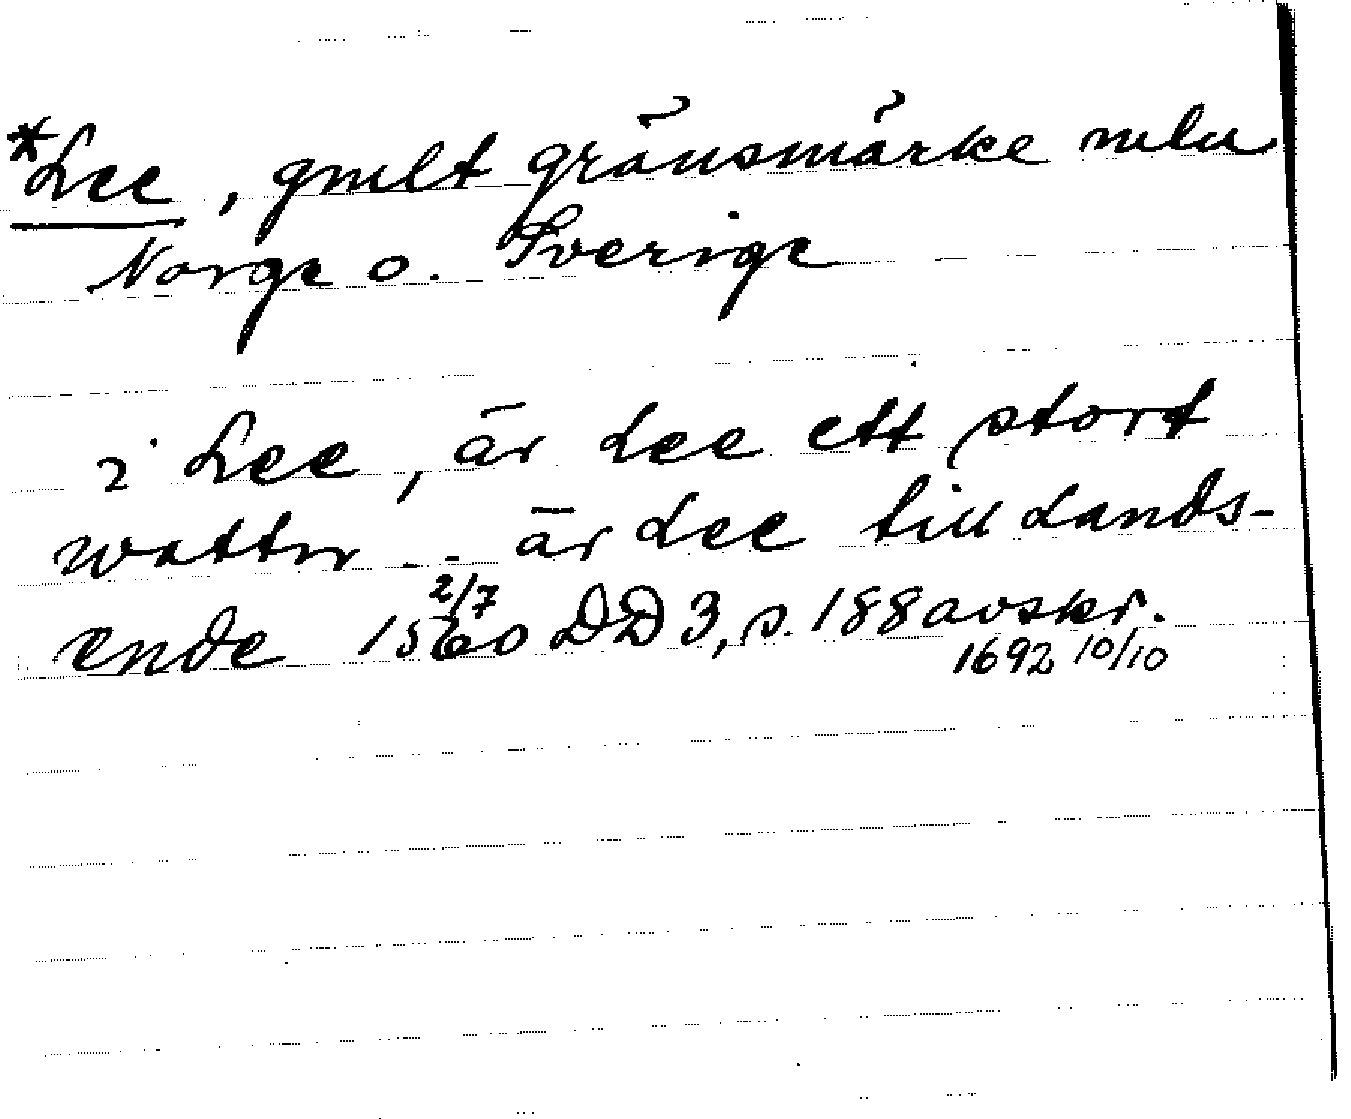 *Lee, gmlt gränsmärke mln
Norge o. Sverige
i Lee, är Lee ett stort
watten .. är Lee till Lands-
ende 1560 2/7 DD 3, s. 188 avskr.
1692 10/10